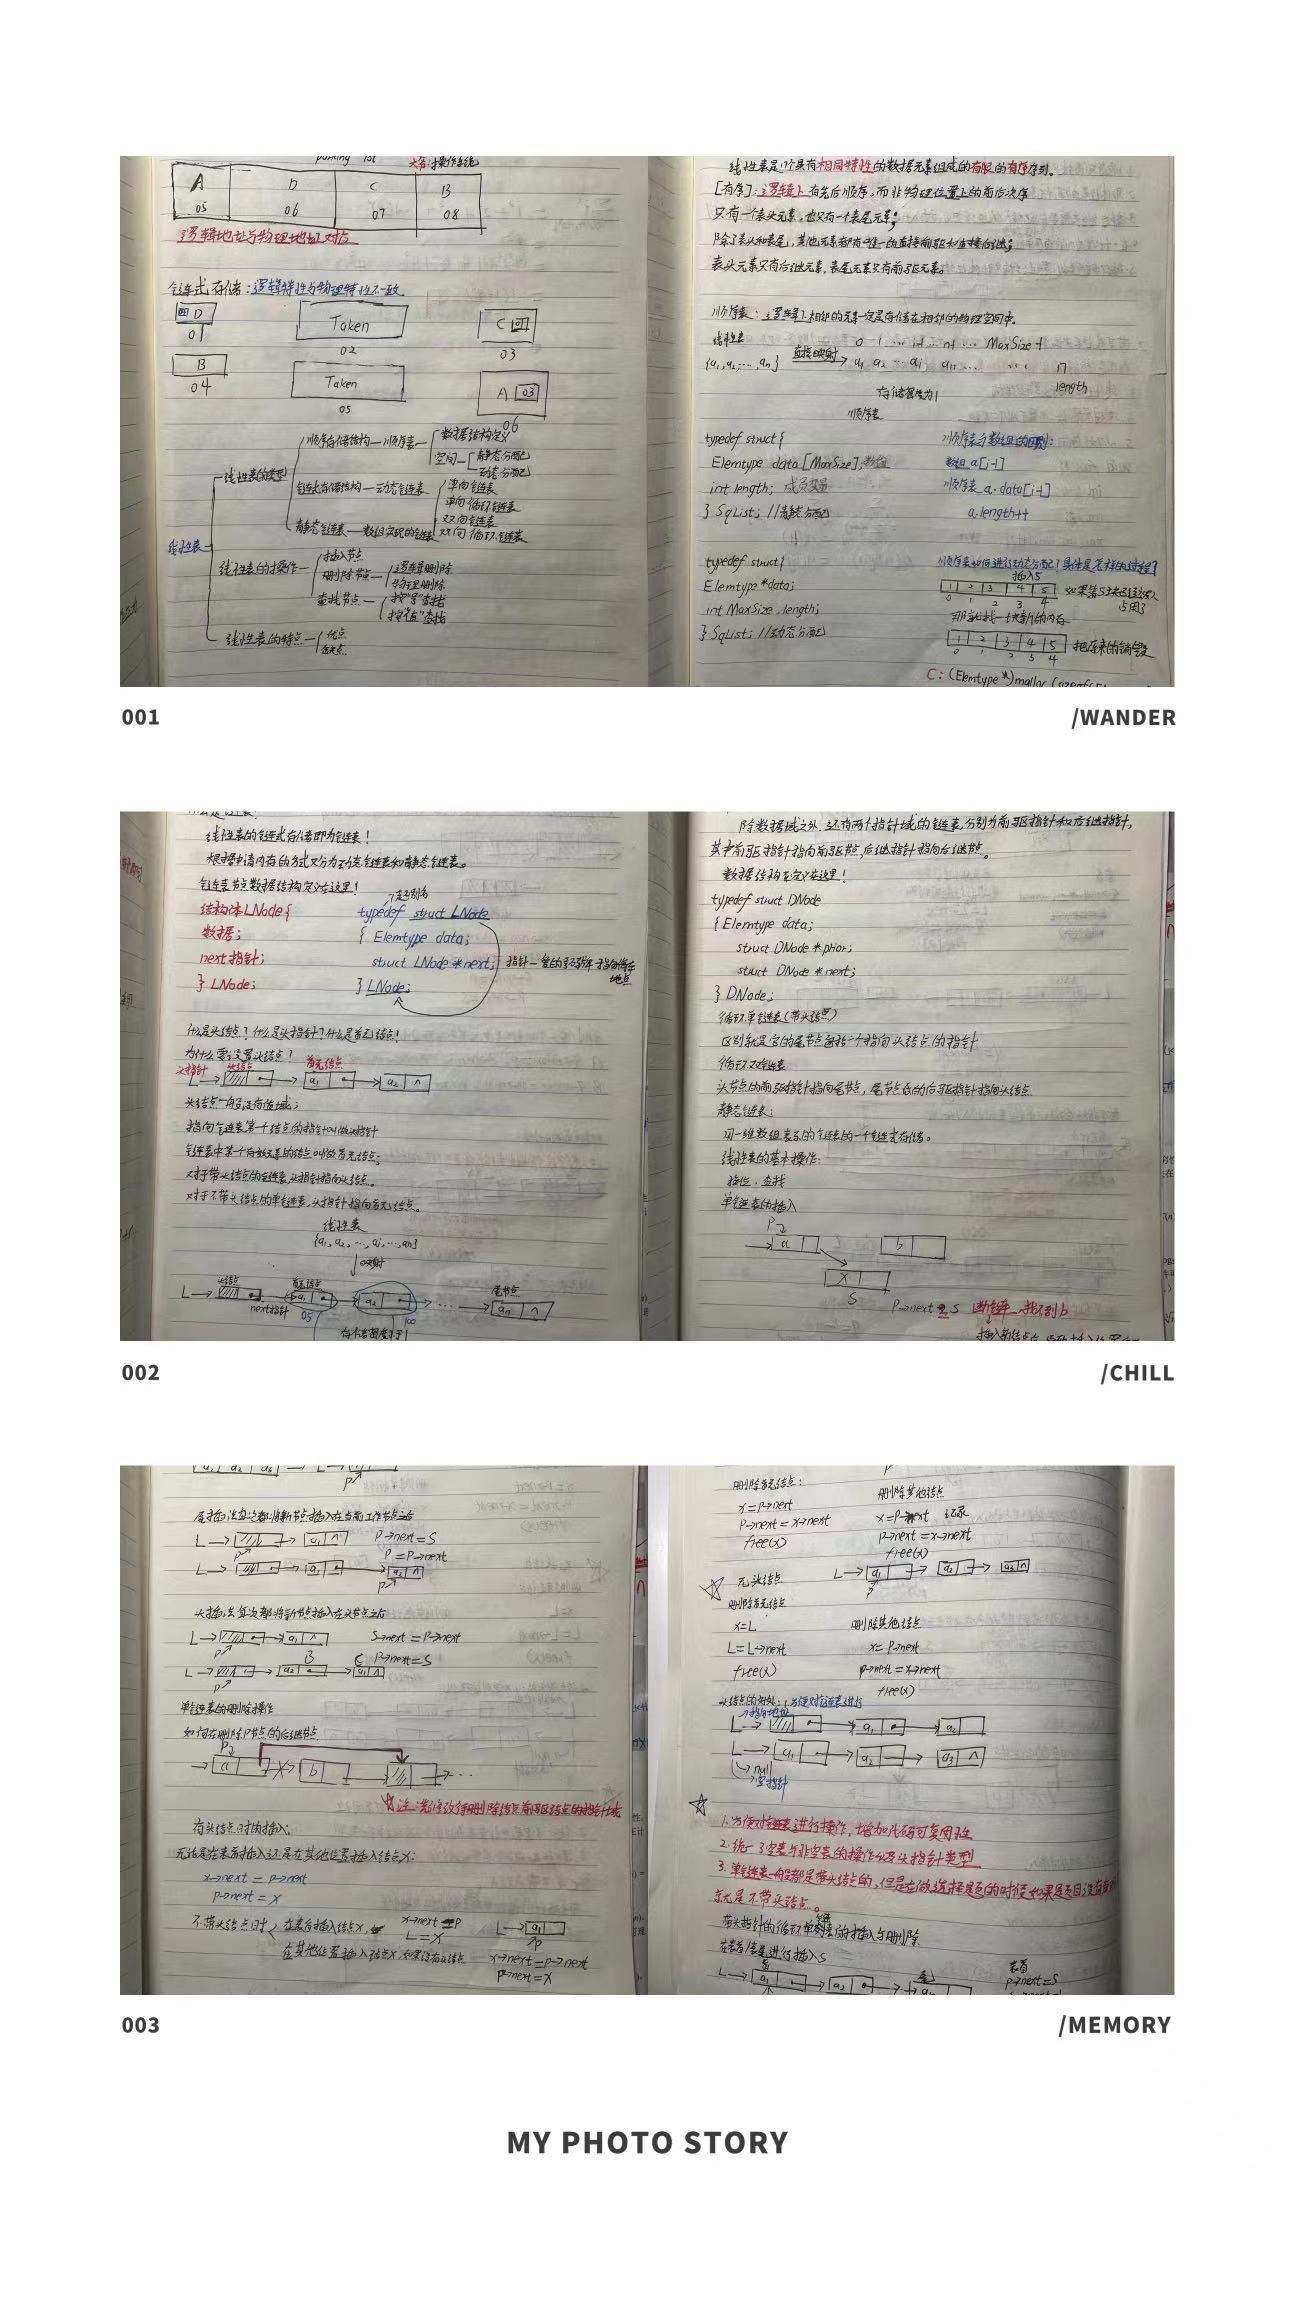 A D C B
05 06 07 08
逻辑地址与物理地址对应
链式存储：逻辑特性与物理特性不一致
D Taken C
01 02 03
B Taken A 03
04 05 06
线性表
线性表的类型
顺序存储结构—顺序表
数据结构定义
空间
静态分配
动态分配
链式存储结构—动态链表
单向链表
单向循环链表
双向链表
双向循环链表
静态链表—数组实现的链表
线性表的操作
插入节点
删除节点
逻辑删除
物理删除
查找节点
按"号"查找
按"值"查找
线性表的特点
优点
缺点
线性表是n个具有相同特性的数据元素组成的有限的有序序列。
[有序]：逻辑上有先后顺序，而非物理位置上的前后次序
只有一个表头元素，也只有一个表尾元素；
除了表头和表尾，其他元素都有唯一的直接前驱和直接后继；
表头元素只有后继元素，表尾元素只有前驱元素。
顺序表：逻辑上相邻的元素一定是存储在相邻的物理空间中。
线性表
{a₁,a₂,…,aₙ} 直接映射
length
存储密度为1
顺序表
typedef struct{
Elemtype data[MaxSize];
int length; 成员变量
} SqList; //静态分配
顺序表与数组的区别：
数组 a[i-1]
顺序表 a.data[i-1]
a.length++
typedef struct{
Elemtype *data;
int MaxSize, length;
} SqList; //动态分配
插入5
1 2 3 4 5
0 1 2 3 4
那就找一块新的内存
1 2 3 4 5
把原来的销毁
001 /WANDER
线性表的链式存储即为链表！
根据申请内存的方式又分为动态链表和静态链表。
链表节点数据结构定义在这里！
起别名
结构体LNode{
数据;
next指针;
} LNode;
typedef struct LNode
{ Elemtype data;
struct LNode *next;
} LNode;
什么是头结点？什么是头指针？什么是首元结点！
为什么要设置头结点！
头指针 头结点 首元结点
L a₁ a₂ ∧
头结点一般没有值域；
指向链表第一个结点的指针叫做头指针
链表中第一个存放元素的结点叫做首元结点；
对于带头结点的链表，头指针指向头结点。
对于不带头结点的单链表，头指针指向首元结点。
线性表
{a₁,a₂,…,aᵢ,…,aₙ}
映射
头结点 首元结点 尾节点
L a₁ a₂ … aₙ ∧
next指针 05
除数据域之外，还有两个指针域的链表，分别为前驱指针和后继指针，
其中前驱指针指向前驱节点，后继指针指向后继节点。
数据结构定义在这里！
typedef struct DNode
{ Elemtype data;
struct DNode *prior;
struct DNode *next;
} DNode;
循环单链表（带头结点）
区别就是它的尾节点有一个指向头结点的指针
循环双链表
头节点的前驱指针指向尾节点，尾节点的后驱指针指向头结点
静态链表：
用一维数组表示的链表的一个链式存储。
线性表的基本操作：
单链表的插入
P
a b
X
S
P→next = S 断链，找不到b
002 /CHILL
尾插法每次都将新节点插入在当前工作节点之后
L a₁ ∧ P→next=S
P=P→next
L a₁ a₂ ∧
头插法每次都将新节点插入在头节点之后
L a₁ ∧ S→next=P→next
B C P→next=S
L a₂ a₁ ∧
单链表的删除操作
如何在删除P节点的后继节点
P
a b …
注：先修改待删除结点前驱结点的指针域
有头结点时的插入：
无论是在表首插入还是在其他位置插入结点X：
x→next = p→next
p→next = x
不带头结点时 在表首插入结点x, x→next=P
L=X
在其他位置插入结点X,如果没有头结点 x→next=p→next
p→next=x
删除首元结点：
x=P→next
P→next=x→next
free(x)
删除其他结点
x=P→next 记录
P→next=x→next
free(x)
无头结点 L a₁ a₂ a₃ ∧
删除首元结点
x=L
L=L→next
free(x)
删除其他结点
x=P→next
p→next=x→next
free(x)
头结点的好处：方便对链表进行
L a₁ a₂
L a₁ a₂ a₃ ∧
null
空指针
1.方便对链表进行操作，增加代码可复用性
2.统一了空表与非空表的操作以及头指针类型
3.单链表一般都是带头结点的，但是在做选择题的时候如果题目没有
就是不带头结点。
带头指针的循环单链表的插入与删除
在表首/表尾进行插入S
L a₁ a₂ 表首
p→next=S
003 /MEMORY
MY PHOTO STORY